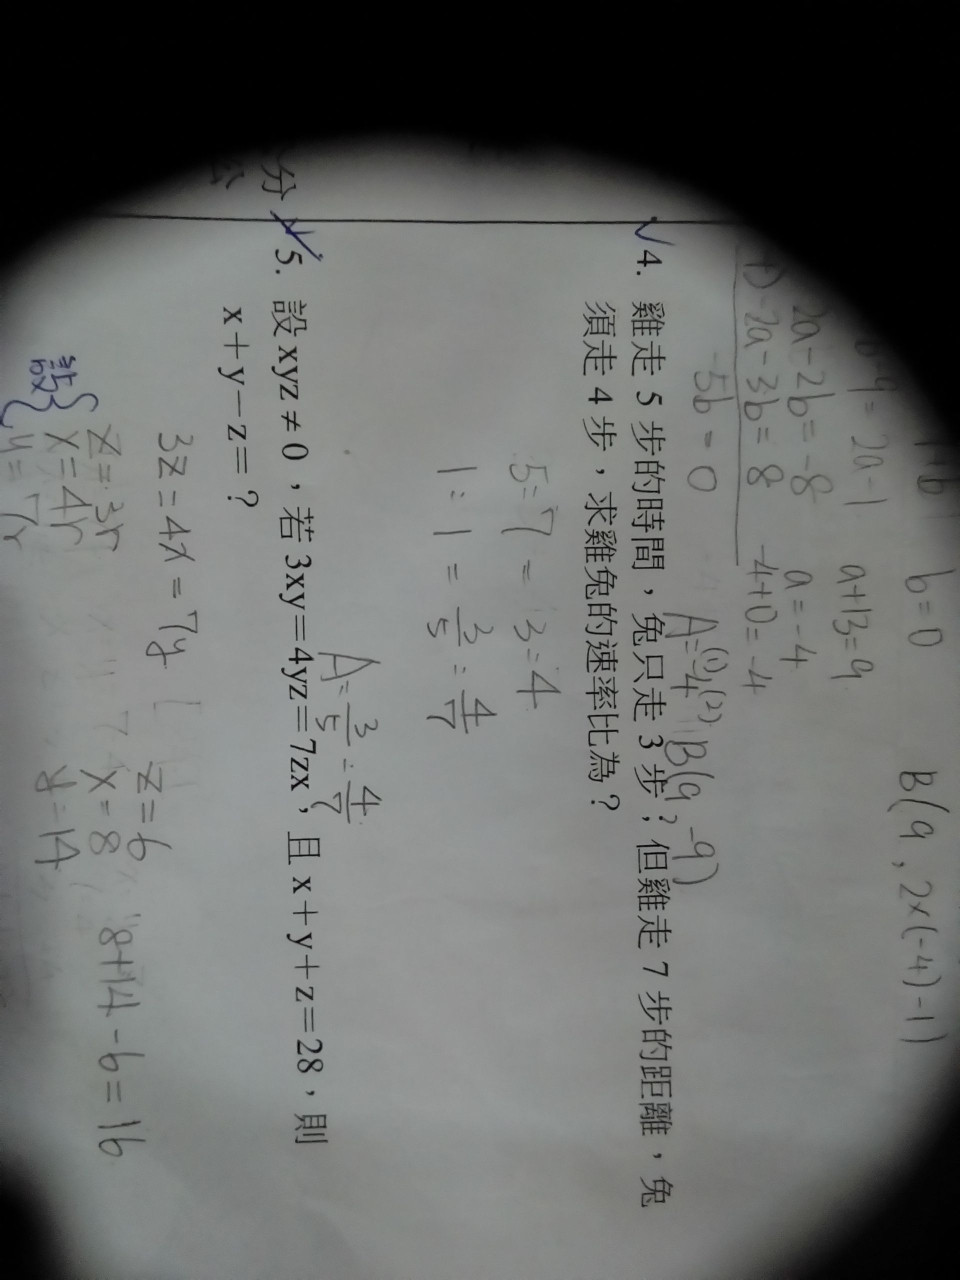 1+b
b=0
B(9,2×(-4)-1)
-9=2a-1
a+13=9
2a-2b=-8
a=-4
+)-2a-3b=8
-4+0=-4
-5b=0
A=-4 B(9,-9)
(1) (2)
4. 雞走 5 步的時間,兔只走 3 步;但雞走 7 步的距離,兔
須走 4 步,求雞兔的速率比為?
5=7=3=4
1:1=3/5:4/7
A=3/5:4/7
分 5. 設 xyz≠0,若 3xy=4yz=7zx,且 x+y+z=28,則
x+y-z=?
3z=4x=7y
z=3r
z=6
x=4r
x=8
8+14-6=16
y=7r
y=14